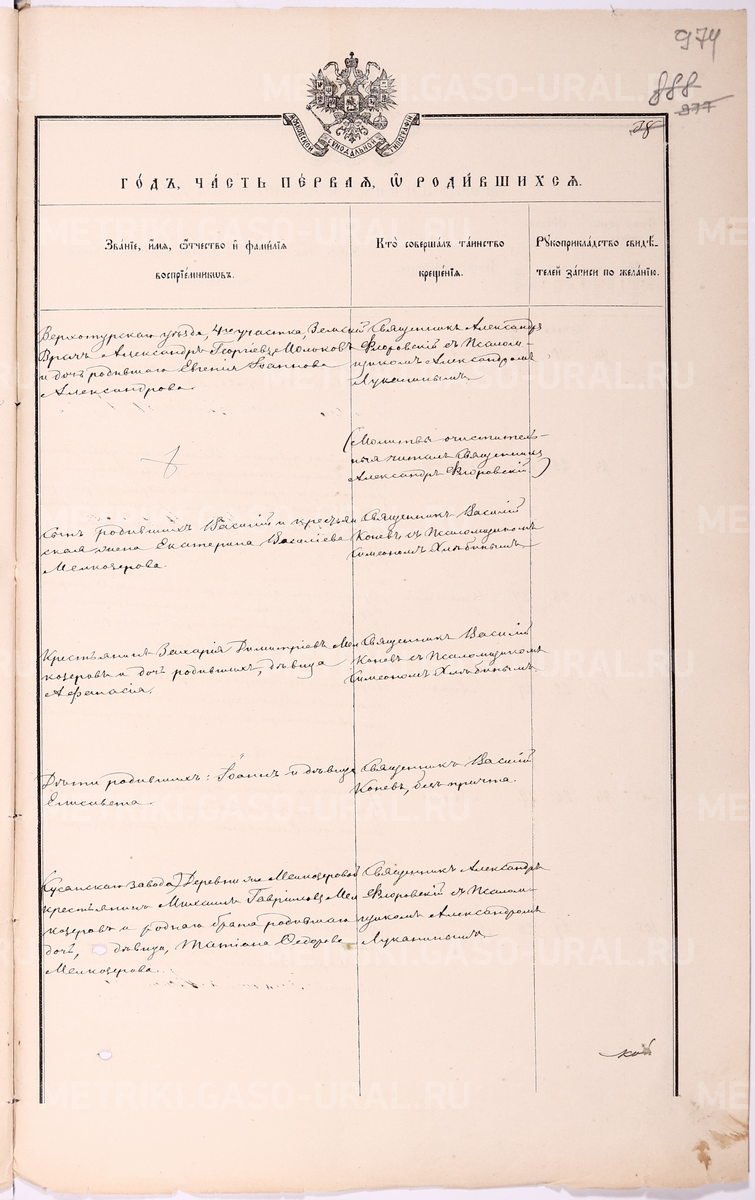 974
888
977
28
МОСКОВСКОЙ СѴНОДАЛЬНОЙ ТИПОГРАФІИ
ГО́ДЪ, ЧА́СТЬ ПЕ́РВАЯ, Ѿ РОДИ́ВШИХСЯ.
Зва́ніе, и́мя, ѻ҆́тчество и҆ фами́лія
воспріе́мниковъ.
Кто̀ соверша́лъ та́инство
креще́нія.
Рꙋкоприкла́дство свидѣ́-
телей за́писи по жела́нію.
Верхотурскаго уѣзда, 4го участка, Земскій
Врачъ Александръ Георгіевъ Мольковъ
и дочь родившаго Евгенія Іоаннова
Александрова.
Священникъ Александръ
Флоровскій съ Псалом-
щикомъ Александромъ
Лукашинымъ.
(Молитвы очиститель-
ныя читалъ Священникъ
Александръ Флоровскій.)
Сынъ родившихъ Василій и крестьян
ская жена Екатерина Василіева
Мелкозерова.
Священникъ Василій
Коневъ съ Псаломщикомъ
Симеономъ Хлѣбинымъ.
Крестьянинъ Захарія Димитріевъ Мел
козеровъ и дочь родившихъ, дѣвица
Афанасія.
Священникъ Василій
Коневъ съ Псаломщикомъ
Симеономъ Хлѣбинымъ.
Дѣти родившихъ: Іоаннъ и дѣвица
Елисавета.
Священникъ Василій
Коневъ, безъ причта.
Сусанскаго завода) Деревни же Мелкозеровой
крестьянинъ Михаилъ Гавріиловъ Мел
козеровъ и роднаго брата родившаго
дочь, дѣвица, Татіана Ѳедорова
Мелкозерова.
Священникъ Александръ
Флоровскій съ Псалом-
щикомъ Александромъ
Лукашинымъ.
METRIKI.GASO-URAL.RU